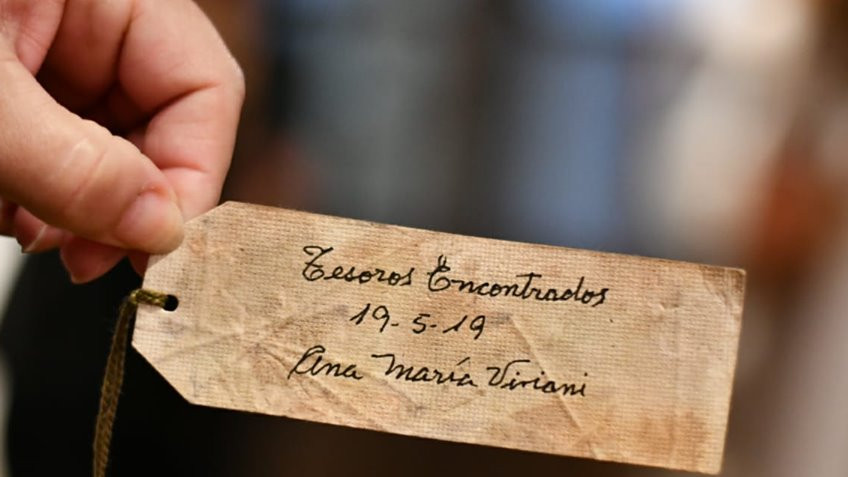 Tesoros Encontrados
19-5-19
Ana María Viviani